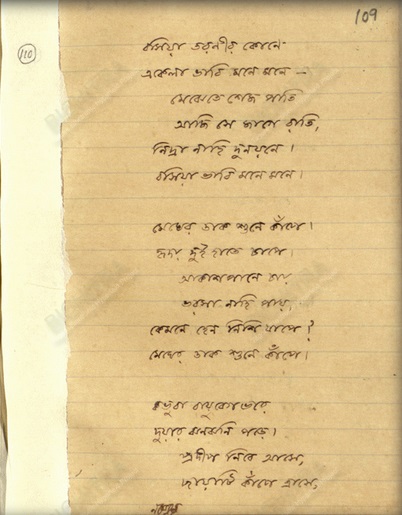 109
110
বসিয়া তরণীর কোণে
একেলা ভাবি মনে মনে —
মেঝেতে শেজ পাতি
আজি সে জাগে রাতি,
নিদ্রা নাহি দুনয়নে।
বসিয়া ভাবি মনে মনে।
মেঘের ডাক শুনে কাঁপে।
হৃদয় দুই হাতে চাপে।
আকাশপানে চায়
ভরসা নাহি পায়,
কেমনে হেন নিশি যাপে?
মেঘের ডাক শুনে কাঁপে।
কভু বা বায়ুবেগভরে
দুয়ার ঝনঝনি পড়ে।
প্রদীপ নিবে আসে,
ছায়াটি কাঁপে ত্রাসে,